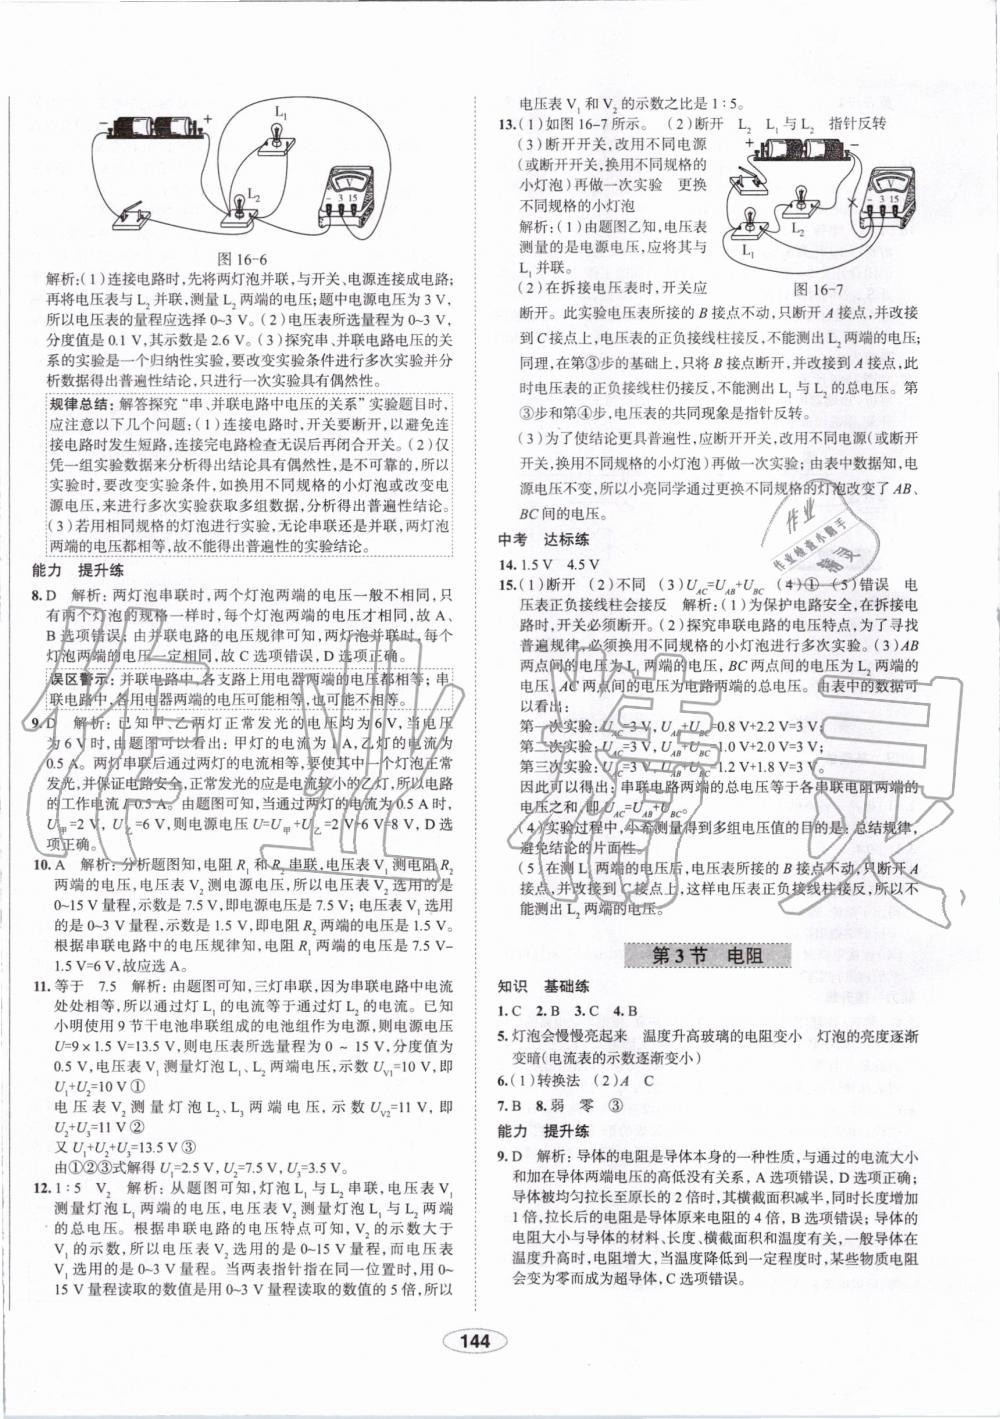 L₁
L₂
- +
V
- 3 15
图 16-6
解析:(1)连接电路时,先将两灯泡并联,与开关、电源连接成电路;
再将电压表与 L₂ 并联,测量 L₂ 两端的电压;题中电源电压为 3 V,
所以电压表的量程应选择 0~3 V。(2)电压表所选量程为 0~3 V,
分度值是 0.1 V,其示数是 2.6 V。(3)探究串、并联电路电压的关
系的实验是一个归纳性实验,要改变实验条件进行多次实验并分
析数据得出普遍性结论,只进行一次实验具有偶然性。
规律总结: 解答探究“串、并联电路中电压的关系”实验题目时,
应注意以下几个问题:(1)连接电路时,开关要断开,以避免连
接电路时发生短路,连接完电路检查无误后再闭合开关。(2)仅
凭一组实验数据来分析得出结论具有偶然性,是不可靠的,所以
实验时,要改变实验条件,如换用不同规格的小灯泡或改变电
源电压,来进行多次实验获取多组数据,分析得出普遍性结论。
(3)若用相同规格的灯泡进行实验,无论串联还是并联,两灯泡
两端的电压都相等,故不能得出普遍性的实验结论。
能力 提升练
8. D 解析: 两灯泡串联时,两个灯泡两端的电压一般不相同,只
有两个灯泡的规格一样时,每个灯泡两端的电压才相同,故 A、
B 选项错误; 由并联电路的电压规律可知,两灯泡并联时,每个
灯泡两端的电压一定相同,故 C 选项错误,D 选项正确。
误区警示: 并联电路中,各支路上用电器两端的电压都相等; 串
联电路中,各用电器两端的电压可能相等,也可能不相等。
9. D 解析: 已知甲、乙两灯正常发光的电压均为 6 V,当电压
为 6 V 时,由图可以看出: 甲灯的电流为 1 A,乙灯的电流为
0.5 A。两灯串联后通过两灯的电流相等,要使其中一个灯正常
发光,并保证电路安全,正常发光的应是电流较小的乙灯,所以电路
的工作电流 I=0.5 A。由题图可知,当通过两灯的电流为 0.5 A 时,
U甲=2 V,U乙=6 V,则电源电压 U=U甲+U乙=2 V+6 V=8 V,D 选
项正确。
10. A 解析: 分析题图知,电阻 R₁ 和 R₂ 串联,电压表 V₁ 测电阻 R₂
两端的电压,电压表 V₂ 测电源电压,所以电压表 V₂ 选用的是
0~15 V 量程,示数是 7.5 V,即电源电压是 7.5 V; 电压表 V₁ 选用
的是 0~3 V 量程,示数是 1.5 V,即电阻 R₂ 两端的电压是 1.5 V。
根据串联电路中的电压规律知,电阻 R₁ 两端的电压是 7.5 V-
1.5 V=6 V,故应选 A。
11. 等于 7.5 解析: 由题图可知,三灯串联,因为串联电路中电流
处处相等,所以通过灯 L₁ 的电流等于通过灯 L₂ 的电流。已知
小明使用 9 节干电池串联组成的电池组作为电源,则电源电压
U=9×1.5 V=13.5 V,则电压表所选量程为 0 ~ 15 V,分度值为
0.5 V,电压表 V₁ 测量灯泡 L₁、L₂ 两端电压,示数 UV1=10 V,即
U₁+U₂=10 V ①
电压表 V₂ 测量灯泡 L₂、L₃ 两端电压,示数 UV2=11 V,即
U₂+U₃=11 V ②
又 U₁+U₂+U₃=13.5 V ③
由①②③式解得 U₁=2.5 V,U₂=7.5 V,U₃=3.5 V。
12. 1∶5 V₂ 解析: 从题图可知,灯泡 L₁ 与 L₂ 串联,电压表 V₁
测量灯泡 L₁ 两端的电压,电压表 V₂ 测量灯泡 L₁ 与 L₂ 两端
的总电压。根据串联电路的电压特点可知,V₂ 的示数大于
V₁ 的示数,所以电压表 V₂ 选用的是 0~15 V 量程,而电压表
V₁ 选用的是 0~3 V 量程。当两表指针指在同一位置时,用 0~
15 V 量程读取的数值是用 0~3 V 量程读取的数值的 5 倍,所以
电压表 V₁ 和 V₂ 的示数之比是 1∶5。
13. (1)如图 16-7 所示。 (2)断开 L₂ L₁ 与 L₂ 指针反转
(3)断开开关,改用不同电源
(或断开开关,换用不同规格的
小灯泡)再做一次实验 更换
不同规格的小灯泡
解析:(1)由题图乙知,电压表
测量的是电源电压,应将其与
L₁ 并联。
(2)在拆接电压表时,开关应
+ -
V
- 3 15
L₁
L₂
图 16-7
断开。此实验电压表所接的 B 接点不动,只断开 A 接点,并改接
到 C 接点上,电压表的正负接线柱接反,不能测出 L₂ 两端的电压;
同理,在第③步的基础上,只将 B 接点断开,并改接到 A 接点,此
时电压表的正负接线柱仍接反,不能测出 L₁ 与 L₂ 的总电压。第
③步和第④步,电压表的共同现象是指针反转。
(3)为了使结论更具普遍性,应断开开关,改用不同电源(或断开
开关,换用不同规格的小灯泡)再做一次实验; 由表中数据知,电
源电压不变,所以小亮同学通过更换不同规格的灯泡改变了 AB、
BC 间的电压。
中考 达标练
14. 1.5 V 4.5 V
15. (1)断开 (2)不同 (3)UAC=UAB+UBC (4)① (5)错误 电
压表正负接线柱会接反 解析:(1)为保护电路安全,在拆接电
路时,开关必须断开。(2)探究串联电路的电压特点,为了寻找
普遍规律,必须换用不同规格的小灯泡进行多次实验。(3)AB
两点间的电压为 L₁ 两端的电压,BC 两点间的电压为 L₂ 两端的
电压,AC 两点间的电压为电路两端的总电压。由表中的数据可
以看出:
第一次实验: UAC=3 V,UAB+UBC=0.8 V+2.2 V=3 V;
第二次实验: UAC=3 V,UAB+UBC=1.0 V+2.0 V=3 V;
第三次实验: UAC=3 V,UAB+UBC=1.2 V+1.8 V=3 V。
因此可以得出: 串联电路两端的总电压等于各串联电阻两端的
电压之和,即 UAC=UAB+UBC。
(4)实验过程中,小希测量得到多组电压值的目的是: 总结规律,
避免结论的片面性。
(5)在测 L₁ 两端的电压后,电压表所接的 B 接点不动,只断开 A
接点,并改接到 C 接点上,这样电压表正负接线柱接反,所以不
能测出 L₂ 两端的电压。
第 3 节 电阻
知识 基础练
1. C 2. B 3. C 4. B
5. 灯泡会慢慢亮起来 温度升高玻璃的电阻变小 灯泡的亮度逐渐
变暗(电流表的示数逐渐变小)
6. (1)转换法 (2)A C
7. B 8. 弱 零 ③
能力 提升练
9. D 解析: 导体的电阻是导体本身的一种性质,与通过的电流大小
和加在导体两端电压的高低没有关系,A 选项错误,D 选项正确;
导体被均匀拉长至原长的 2 倍时,其横截面积减半,同时长度增加
1 倍,拉长后的电阻是导体原来电阻的 4 倍,B 选项错误; 导体的
电阻与导体的材料、长度、横截面积和温度有关,一般导体在
温度升高时,电阻增大,当温度降低到一定程度时,某些物质电阻
会变为零而成为超导体,C 选项错误。
144
作业
作业检查小助手
精灵
作业精灵